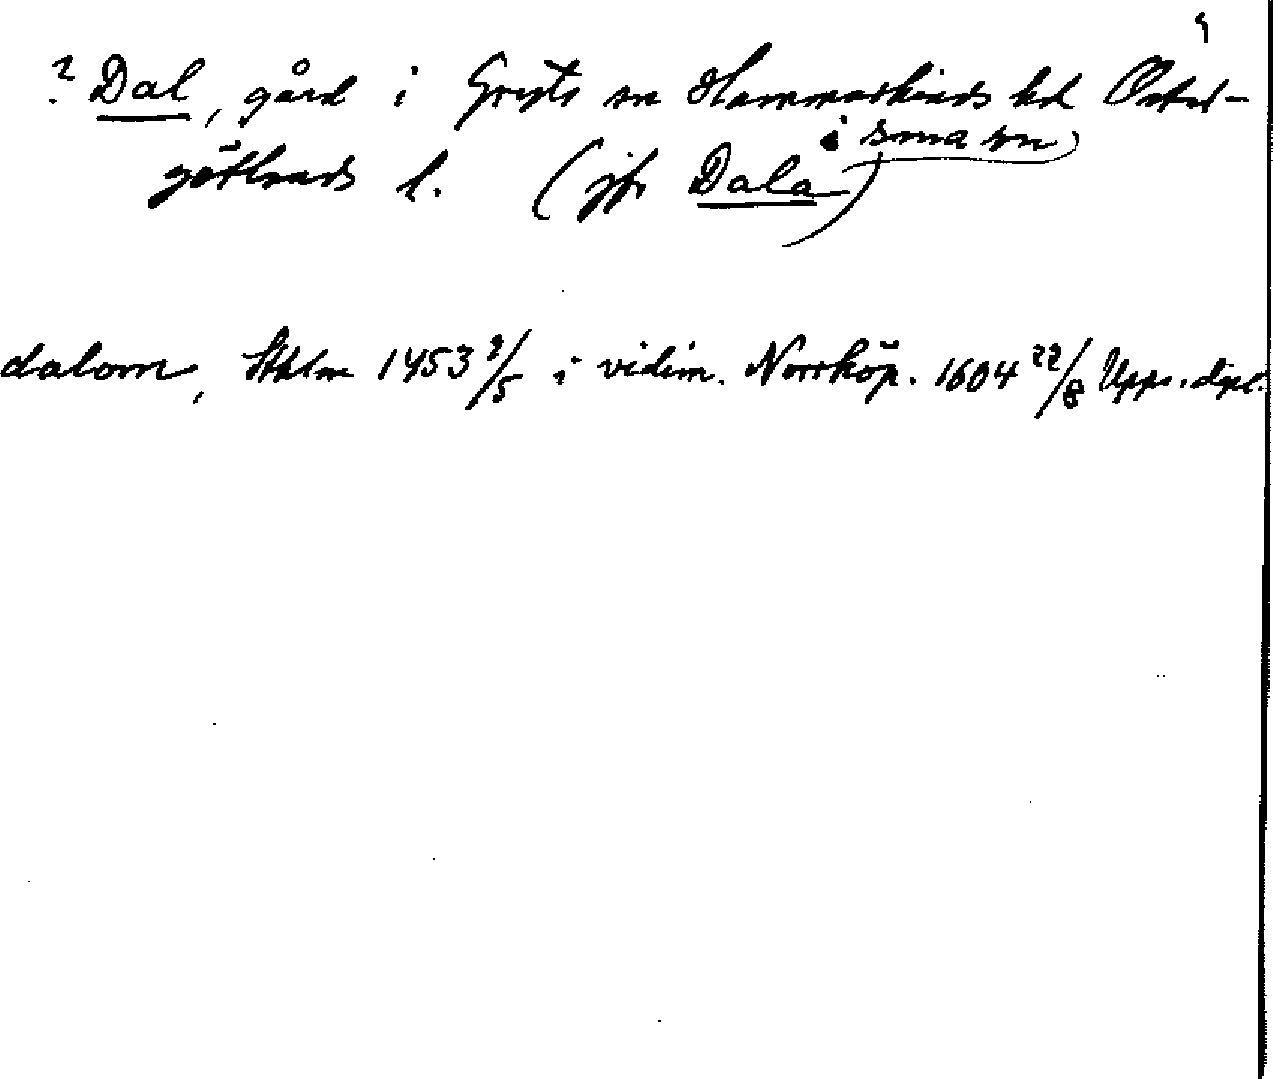 ? Dal, gård i Gryts sn Hammarkinds hd Öster-
götlands l. (jfr Dala i sma sn)
dalom, Sthlm 1453 3/5 i vidim. Norrköp. 1604 22/8 Upps. dipl.